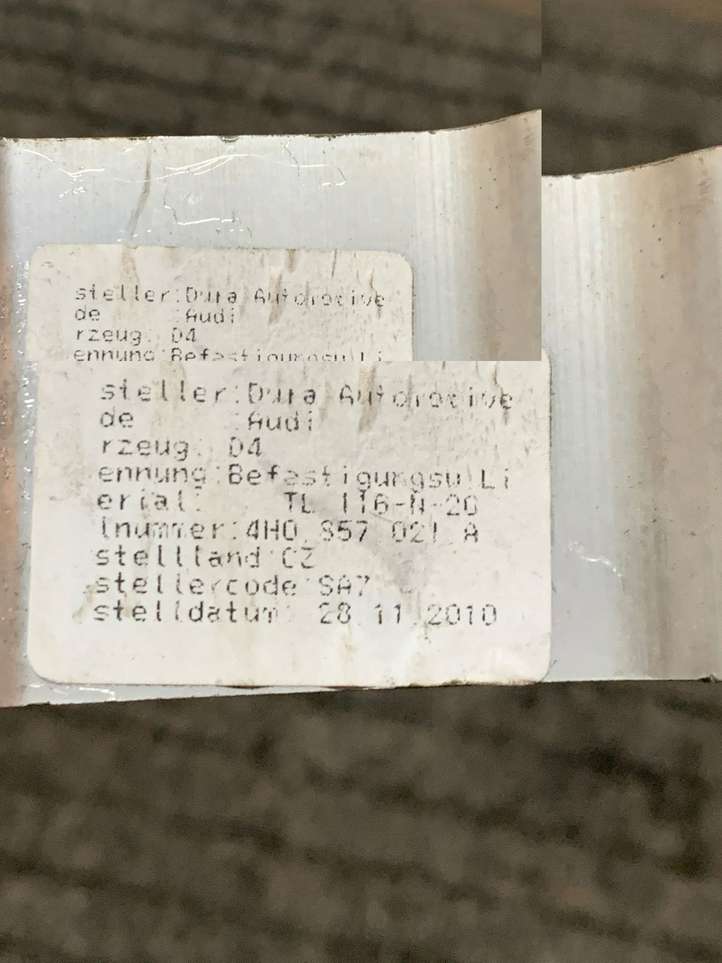 steller:Dura Automotive
de :Audi
rzeug: D4
ennung:Befestigungsu Li
steller:Dura Automotive
de :Audi
rzeug: D4
ennung:Befestigungsu Li
erial: TL 116-N-20
lnummer:4H0 857 021 A
stellland:CZ
stellercode:SA7
stelldatum: 28.11.2010